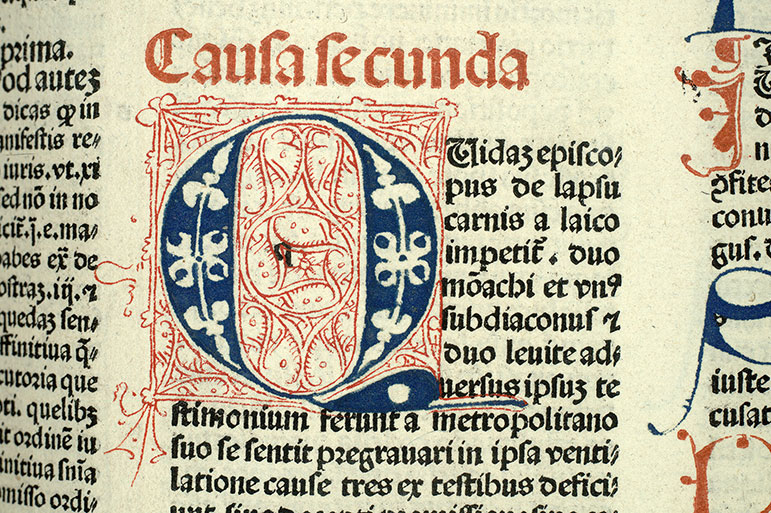 prima.
od autez
dicas qꝫ in
nifestis re⸗
iuris. vt. xi
sed nō in no
e. ma⸗
abes ex̄ de
ostraz. iij. ⁊
quedaz sen⸗
ffinitiua q̄⸗
cutoria que
oti. quelibz
it ordinē iu
initiua snīa
omisso ordi⸗
Causa secunda
Q
q
Uidaz episco⸗
pus de lapsu
carnis a laico
impetit᷑. duo
mōachi et vnꝰ
subdiaconus ⁊
duo leuite ad⸗
uersus ipsuz te
stimonium ferunt a metropolitano
suo se sentit pregrauari in ipsa venti⸗
latione cause tres ex testibus defici⸗
ꝓfites
conu
gus.
iuste
cusat